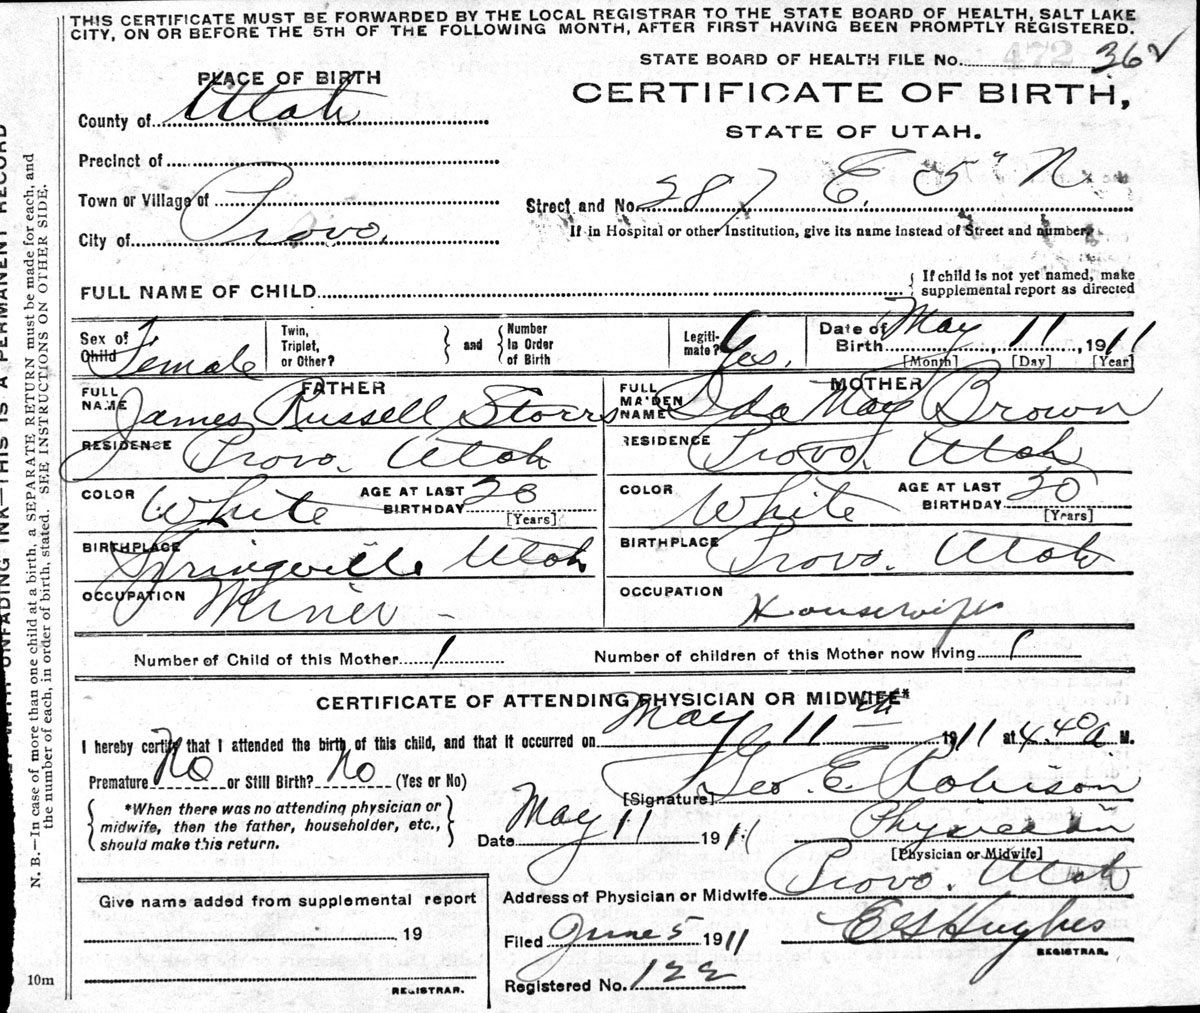 THIS CERTIFICATE MUST BE FORWARDED BY THE LOCAL REGISTRAR TO THE STATE BOARD OF HEALTH, SALT LAKE
CITY, ON OR BEFORE THE 5TH OF THE FOLLOWING MONTH, AFTER FIRST HAVING BEEN PROMPTLY REGISTERED.
STATE BOARD OF HEALTH FILE No. 472 362
PLACE OF BIRTH
CERTIFICATE OF BIRTH,
County of Utah
STATE OF UTAH.
Precinct of
Town or Village of
Street and No. 287 E. 5" N
City of Provo.
If in Hospital or other Institution, give its name instead of Street and number.
FULL NAME OF CHILD
If child is not yet named, make
supplemental report as directed
Sex of Child Female
Twin, Triplet, or Other?
and
Number In Order of Birth
Legitimate? Yes.
Date of Birth May 11, 1911
[Month] [Day] [Year]
FATHER
MOTHER
FULL NAME James Russell Storrs
FULL MAIDEN NAME Ida May Brown
RESIDENCE Provo. Utah
RESIDENCE Provo. Utah
COLOR White AGE AT LAST BIRTHDAY [Years]
COLOR White AGE AT LAST BIRTHDAY 20 [Years]
BIRTHPLACE Springville Utah
BIRTHPLACE Provo. Utah
OCCUPATION Miner -
OCCUPATION Housewife
Number of Child of this Mother 1
Number of children of this Mother now living 1
CERTIFICATE OF ATTENDING PHYSICIAN OR MIDWIFE*
I hereby certify that I attended the birth of this child, and that it occurred on May 11th 1911 at 4.40 A M.
Premature No or Still Birth? No (Yes or No)
[Signature] Geo. E. Robison
*When there was no attending physician or
midwife, then the father, householder, etc.,
should make this return.
Date May 11 1911
Physician
[Physician or Midwife]
Give name added from supplemental report
Address of Physician or Midwife Provo. Utah
19
Filed June 5 1911
E G Hughes
REGISTRAR.
REGISTRAR.
Registered No. 122
10m
WITH UNFADING INK—THIS IS A PERMANENT RECORD
N. B.—In case of more than one child at a birth, a SEPARATE RETURN must be made for each, and
the number of each, in order of birth, stated. SEE INSTRUCTIONS ON OTHER SIDE.